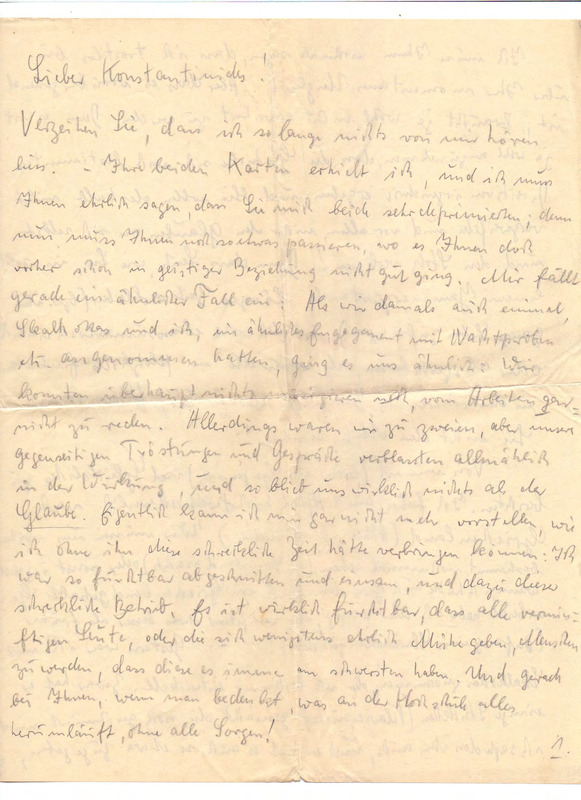 Lieber Konstantinides!
Verzeihen Sie, dass ich so lange nichts von mir hören
liess. – Ihre beiden Karten erhielt ich, und ich muss
Ihnen ehrlich sagen, dass Sie mich beide sehr deprimierten; denn
nun muss Ihnen noch so etwas passieren, wo es Ihnen doch
vorher schon in geistiger Beziehung nicht gut ging. Mir fällt
gerade ein ähnlicher Fall ein: Als wir damals auch einmal,
Skalkottas und ich, ein ähnliches Engagement mit Nachtproben
etc. angenommen hatten, ging es uns ähnlich: Wir
konnten überhaupt nichts mehr, vom Arbeiten gar
nicht zu reden. Allerdings waren wir zu zweien, aber unsere
gegenseitigen Tröstungen und Gespräche verblassten allmählich
in der Wirkung, und so blieb uns wirklich nichts als der
Glaube. Eigentlich kann ich mir gar nicht mehr vorstellen, wie
ich ohne ihn diese schreckliche Zeit hätte verbringen können: Ich
war so furchtbar abgeschnitten und einsam, und dazu dieser
schreckliche Betrieb. Es ist wirklich furchtbar, dass alle vernün-
ftigen Leute, oder die sich wenigstens ehrlich Mühe geben, Menschen
zu werden, dass diese es immer am schwersten haben. Und gerade
bei Ihnen, wenn man bedenkt, was an der Hochschule alles
herumläuft, ohne alle Sorgen!
1.